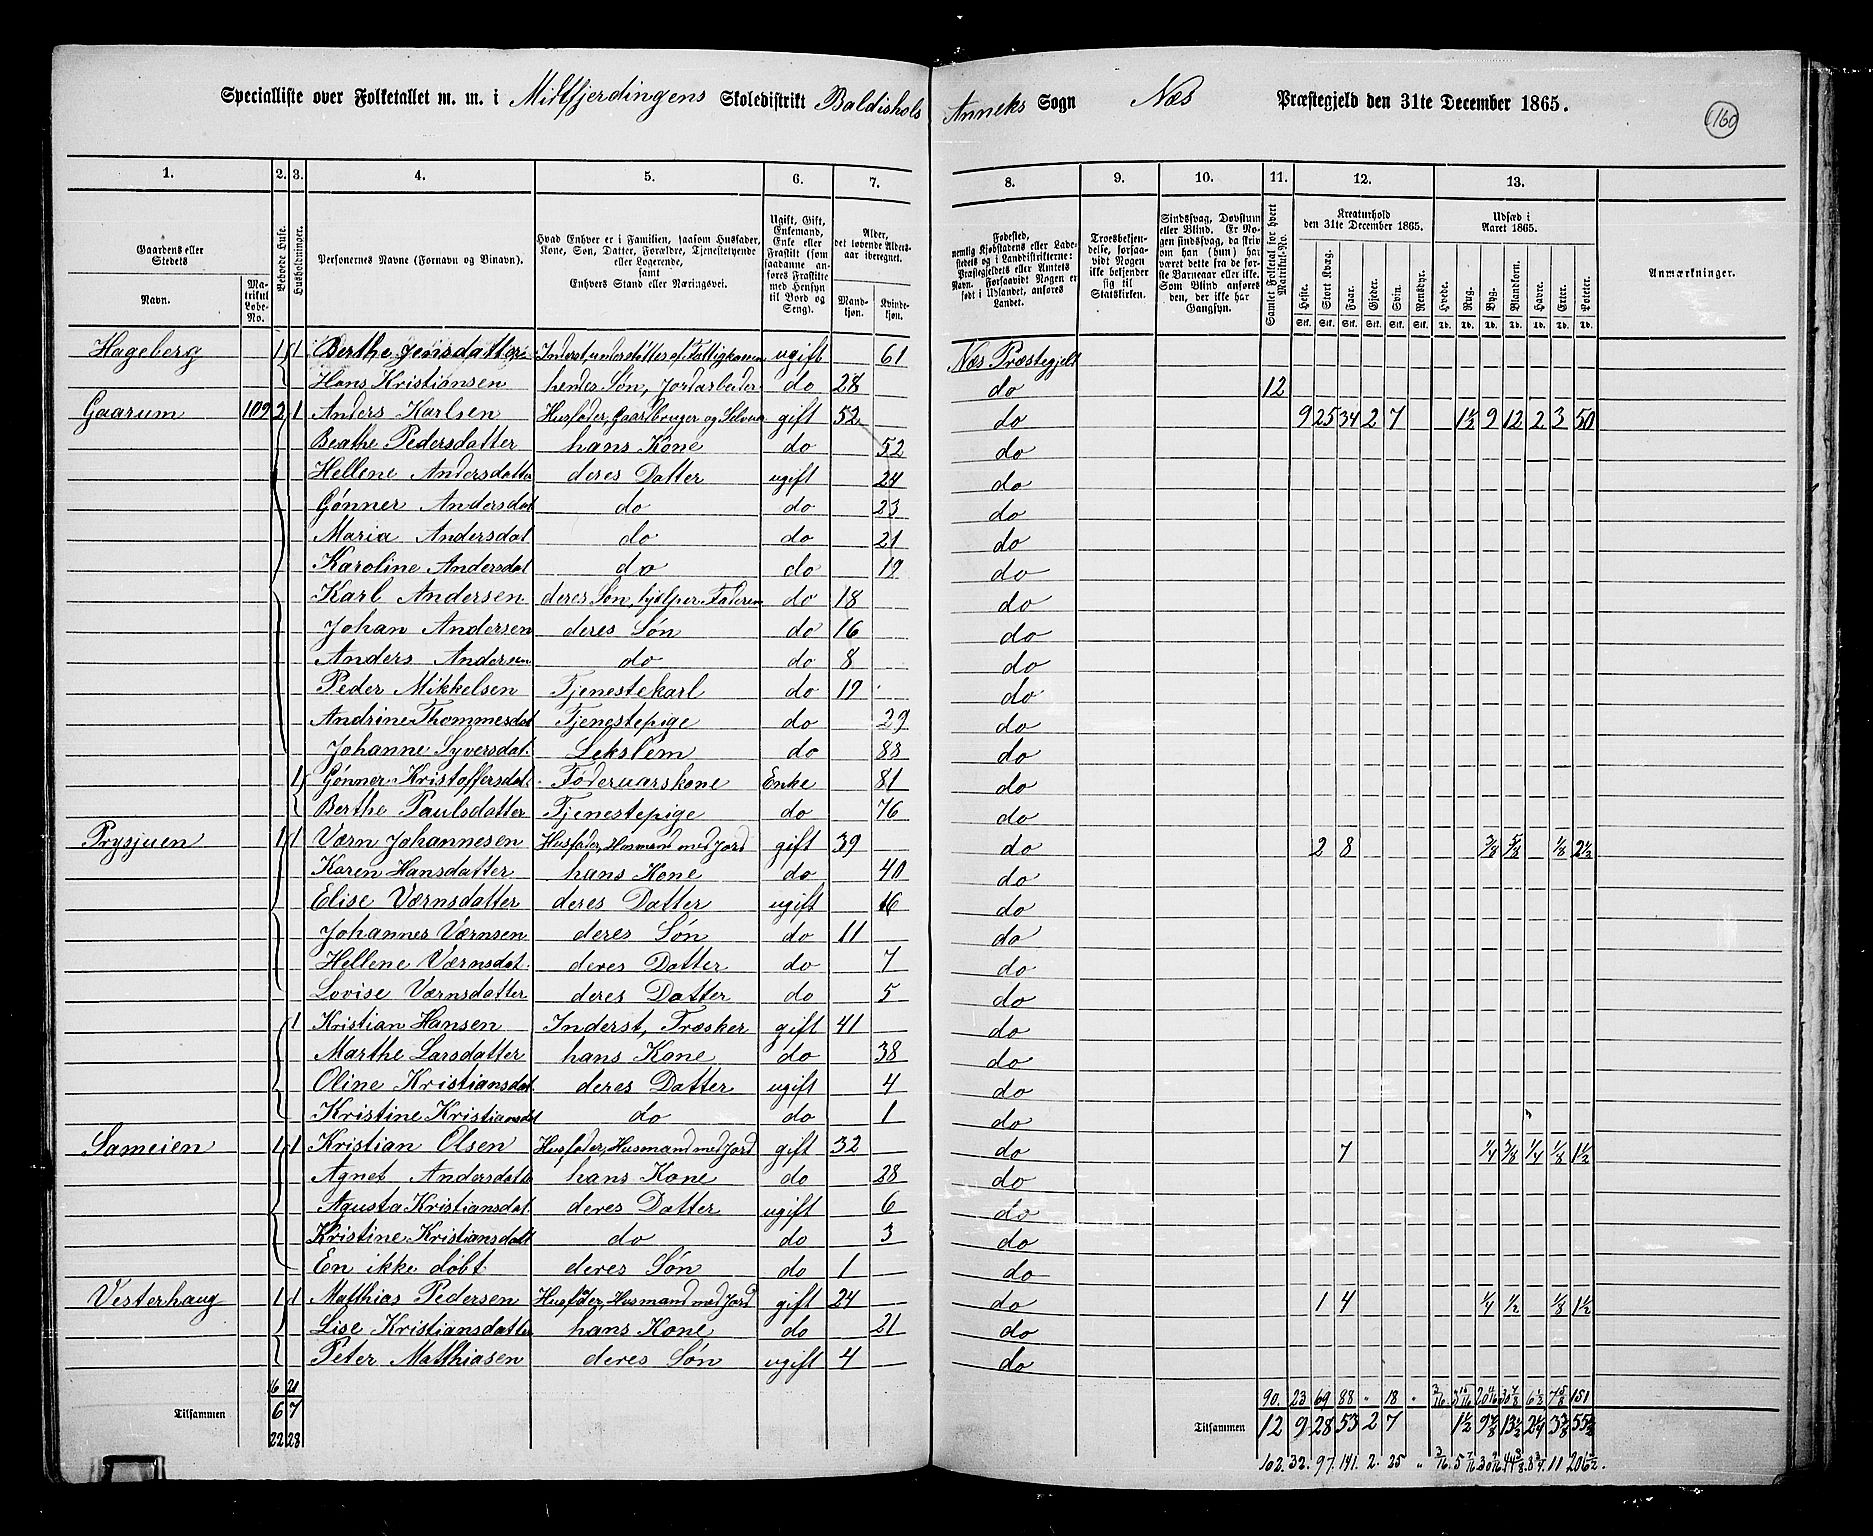 Specialliste over Folketallet m. m. i Midtfjerdingens Skoledistrikt Baldishols Annekś Sogn Næs Præstegjeld den 31te December 1865.
160
1. 2. 3. 4. 5. 6. 7. 8. 9. 10. 11. 12. 13.
Gaardens eller Stedets
Navn. Matrikul Løbe-No.
Beboede Huse.
Husholdninger.
Personernes Navne (Fornavn og Binavn).
Hvad Enhver er i Familien, saasom Husfader, Kone, Søn, Datter, Forældre, Tjenestetyende eller Logerende, samt Enhvers Stand eller Næringsvei.
Ugift, Gift, Enkemand, Enke eller Fraskilt (som saadanne anføres Fraskilte med Hensyn til Bord og Seng).
Alder, det løbende Alders-aar iberegnet.
Mandkjøn. Kvindekjøn.
Fødested, nemlig Kjøbstadens eller Ladestedets eller i Landdistrikterne: Præstegjeldets eller Amtets Navn. Forsaavidt Nogen er født i Udlandet, anføres Landet.
Troesbekjendelse, forsaavidt Nogen ikke bekjender sig til Statskirken.
Sindssvag, Døvstum eller Blind. Er Nogen sindssvag, da skriv om han (hun) har været dette fra de første Barneaar eller ikke. Som Blind anføres den, der ikke har Gangsyn.
Samlet Folketal for hvert Matrikul-No.
Kreaturhold den 31te December 1865.
Heste. Stort Kvæg. Faar. Gjeder. Svin. Rensdyr.
Stk. Stk. Stk. Stk. Stk. Stk.
Udsæd i Aaret 1865.
Hvede. Rug. Byg. Blandkorn. Havre. Erter. Poteter.
Td. Td. Td. Td. Td. Td. Td.
Anmærkninger.
Hageberg 1 1 Berthe Jensdatter Inderst, understøttes af Fattigkassen ugift 61 Næs Præstegjelt
Hans Kristiansen hendes Søn, Jordarbeider do 28 do 12
Gaarum 109 2 1 Anders Karlsen Husfader, Gaardbruger og Selveier gift 52 do 9 25 34 2 7 1½ 9 12 2 3 50
Beathe Pedersdatter hans Kone do 52 do
Hellene Andersdatter deres Datter ugift 24 do
Gønner Andersdat do do 23 do
Maria Andersdat do do 21 do
Karoline Andersdat do do 19 do
Karl Andersen deres Søn, hjelper Faderen do 18 do
Johan Andersen deres Søn do 16 do
Anders Andersen do do 8 do
Peder Mikkelsen Tjenestekarl do 19 do
Andrine Thommesdat Tjenestepige do 29 do
Johanne Syversdat. Lekslem do 88 do
1 Gønner Kristoffersdat Føderaarskone Enke 81 do
Berthe Paulsdatter Tjenestepige do 76 do
Prysjuen 1 1 Værn Johannesen Husfader, Husmand med Jord gift 39 do 2 8 3/8 5/8 1/8 2½
Karen Hansdatter hans Kone do 40 do
Elise Værnsdatter deres Datter ugift 16 do
Johannes Værnsen deres Søn do 11 do
Hellene Værnsdat. deres Datter do 7 do
Lovise Værnsdatter deres Datter do 5 do
1 Kristian Hansen Inderst, Træsker gift 41 do
Marthe Larsdatter hans Kone do 38 do
Oline Kristiansdat. deres Datter ugift 4 do
Kristine Kristiansdat do do 1 do
Sameien 1 1 Kristian Olsen Husfader, Husmand med Jord gift 32 do 7 ¼ 3/8 ¼ 1/8 1½
Agnet Andersdatte hans Kone do 28 do
Agusta Kristiansdat. deres Datter ugift 6 do
Kristine Kristiansdatt do do 3 do
En ikke døbt deres Søn do 1 do
Vesterhaug 1 1 Matthias Pedersen Husfader, Husmand med Jord gift 24 do 1 4 ¼ ½ 1/8 1½
Lise Kristiansdatter hans Kone do 21 do
Peter Matthiasen deres Søn ugift 4 do
16 21 90. 23 69 88 " 18 " 3/16 151
Tilsammen 6 7 Tilsammen 12 9 28 53 2 7 1½ 13½ 2¼ 55½
22 28 102. 32. 97. 141. 2. 25 " 3/16 11 206½.